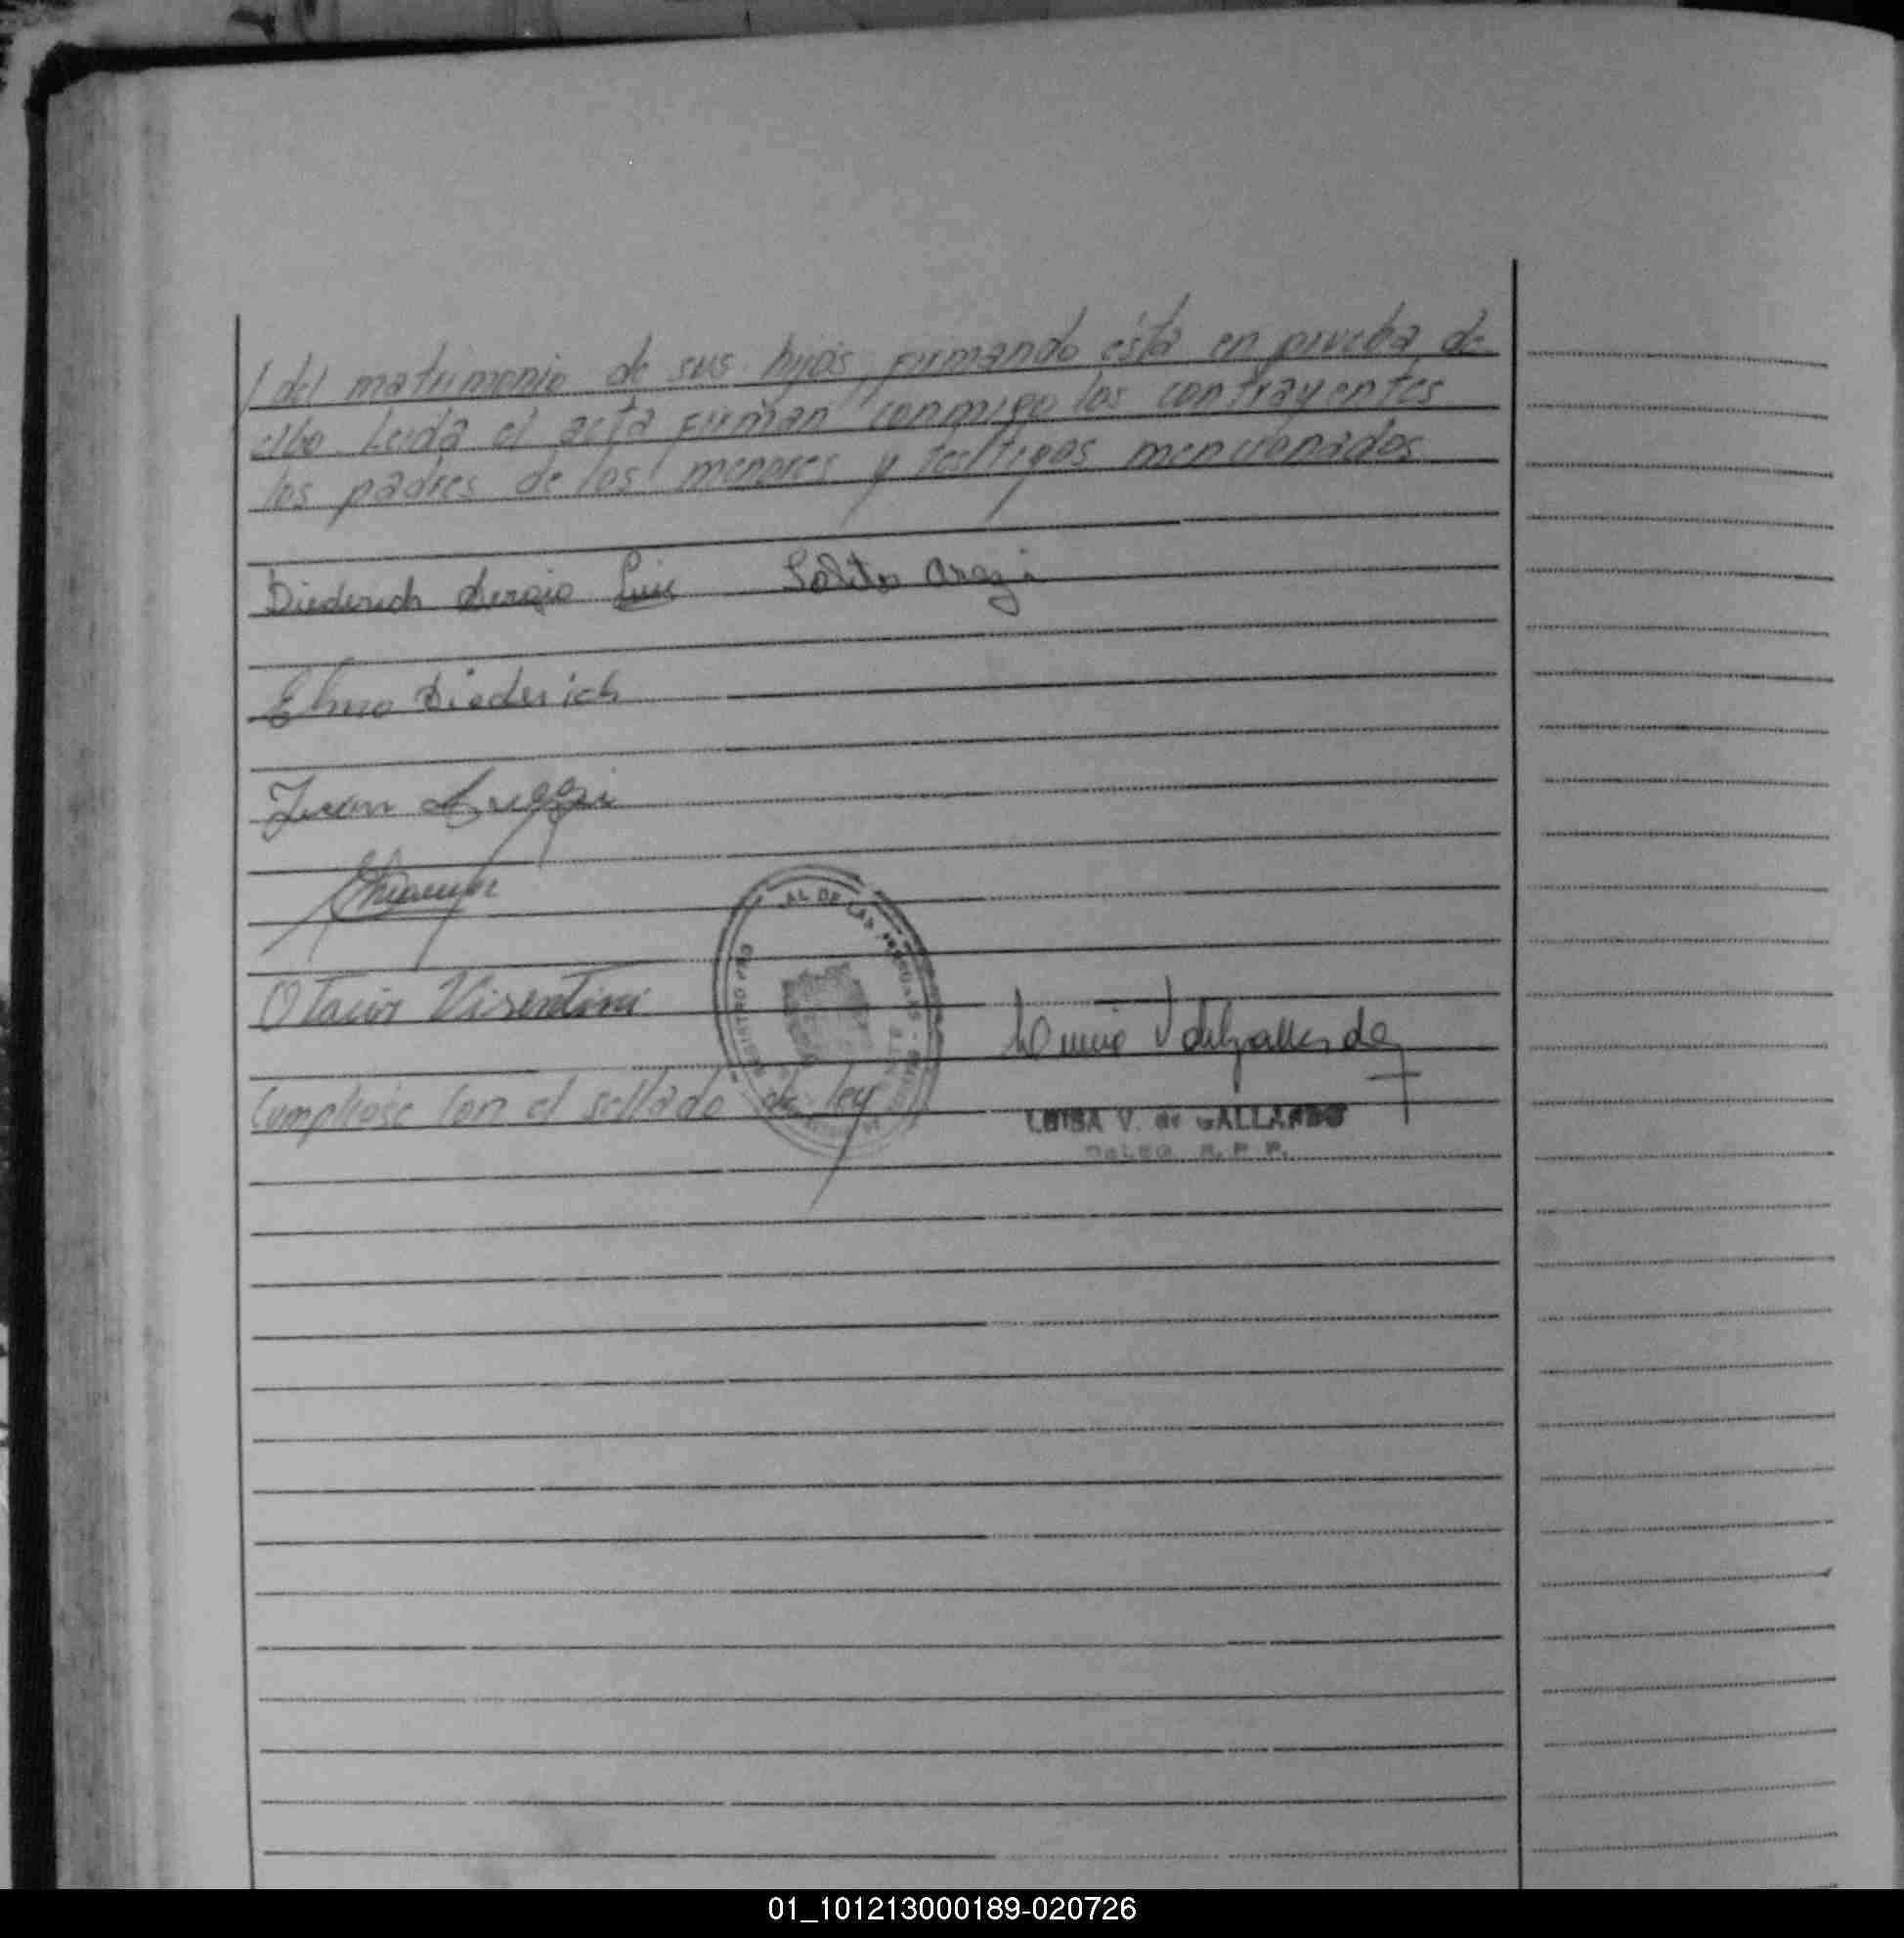 / del matrimonio de sus hijos, firmando ésta en prueba de
ello. Leida el acta firman conmigo los contrayentes
los padres de los menores y testigos mencionados
Diederich Sergio Luis
Elmo Diederich
Juan
Otacir Visentini
AL DE LAS PERSONAS
Cumpliose con el sellado de ley
LUISA V. de GALLARDO
R. P. P.
01_101213000189-020726